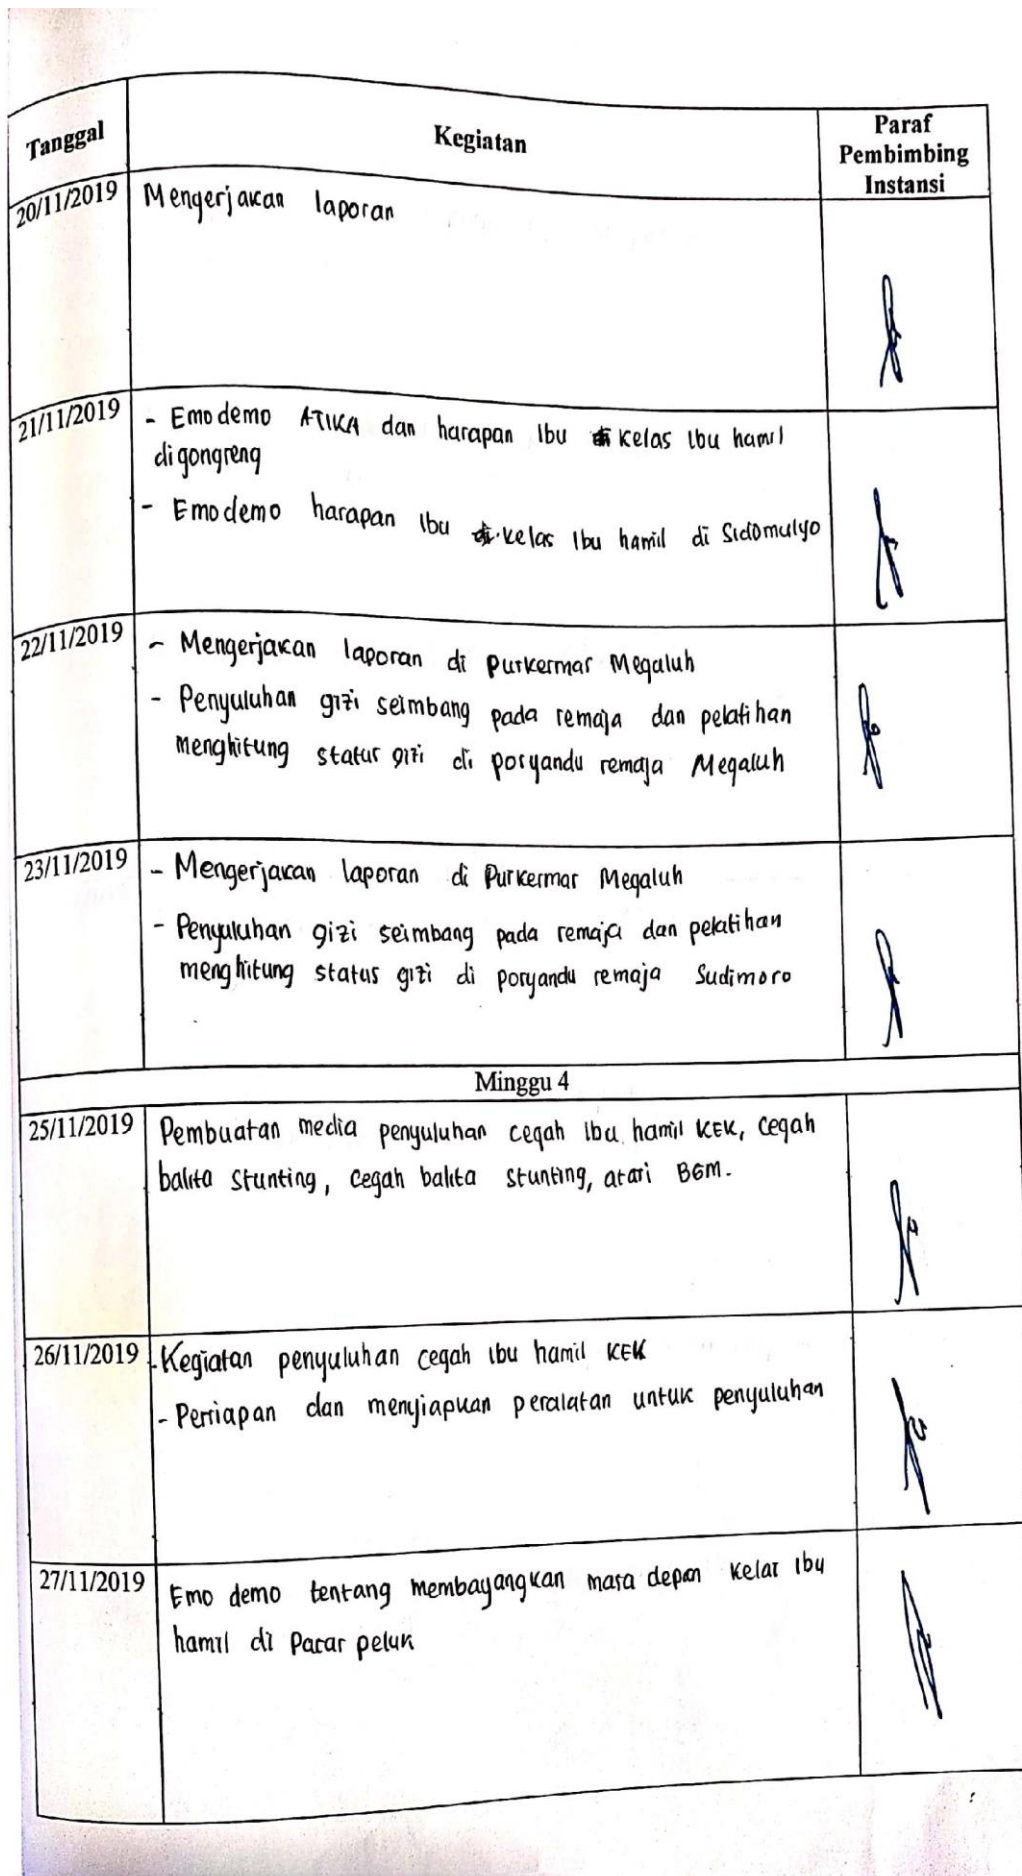 Tanggal
Kegiatan
Paraf
Pembimbing
Instansi
20/11/2019
Mengerjakan laporan
21/11/2019
- Emodemo ATIKA dan harapan Ibu kelas Ibu hamil
di gongreng
- Emodemo harapan Ibu kelas Ibu hamil di Sidomulyo
22/11/2019
- Mengerjakan laporan di Puskesmas Megaluh
- Penyuluhan gizi seimbang pada remaja dan pelatihan
menghitung status gizi di posyandu remaja Megaluh
23/11/2019
- Mengerjakan laporan di Puskesmas Megaluh
- Penyuluhan gizi seimbang pada remaja dan pelatihan
menghitung status gizi di posyandu remaja Sudimoro
Minggu 4
25/11/2019
Pembuatan media penyuluhan cegah ibu hamil KEK, cegah
balita stunting, cegah balita stunting, atasi BGM.
26/11/2019
- Kegiatan penyuluhan cegah ibu hamil KEK
- Persiapan dan menyiapkan peralatan untuk penyuluhan
27/11/2019
Emo demo tentang membayangkan masa depan kelas Ibu
hamil di Pacar peluk